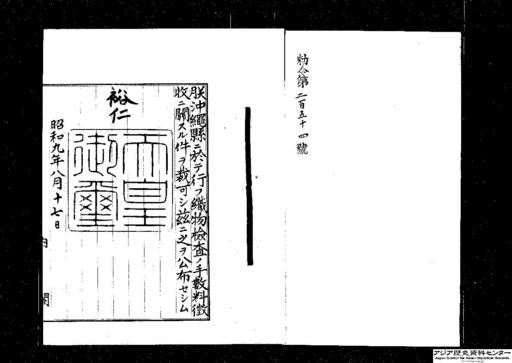 勅令第二百五十四號
朕沖繩縣ニ於テ行フ織物檢査ノ手數料徴
收ニ關スル件ヲ裁可シ茲ニ之ヲ公布セシム
裕仁
天皇
御璽
昭和九年八月十七日
内閣
アジア歴史資料センター
Japan Center for Asian Historical Records